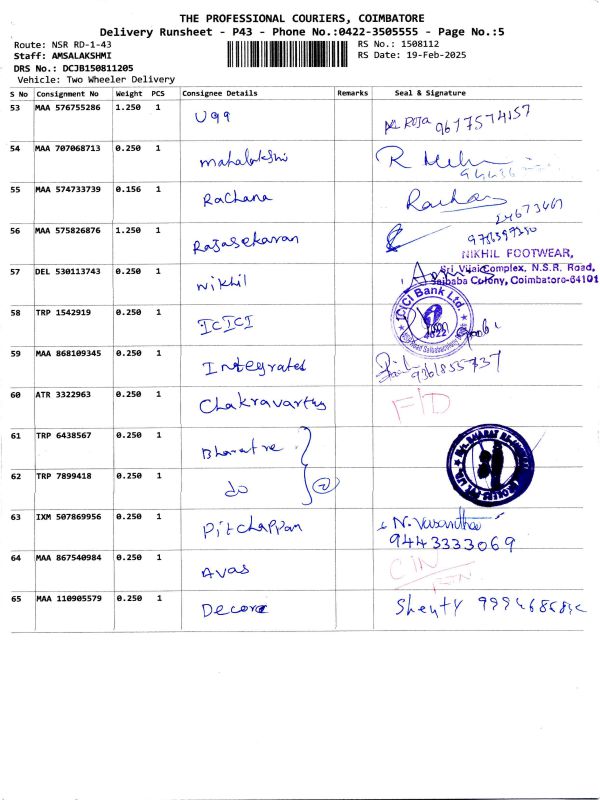 THE PROFESSIONAL COURIERS, COIMBATORE
Delivery Runsheet - P43 - Phone No.:0422-3505555 - Page No.:5
Route: NSR RD-1-43 RS No.: 1508112
Staff: AMSALAKSHMI RS Date: 19-Feb-2025
DRS No.: DCJB150811205
Vehicle: Two Wheeler Delivery
S No Consignment No Weight PCS Consignee Details Remarks Seal & Signature
53 MAA 576755286 1.250 1 ROJA 9677574157
54 MAA 707068713 0.250 1 mahalakshmi R
55 MAA 574733739 0.156 1 Rachana
56 MAA 575826876 1.250 1 Rajasekaran
NIKHIL FOOTWEAR,
Sri Vijai Complex, N.S.R. Road,
Saibaba Colony, Coimbatore-64101
57 DEL 530113743 0.250 1 Nikhil
58 TRP 1542919 0.250 1 ICICI ICICI Bank Ltd.
59 MAA 868109345 0.250 1 Integrated 9361855737
60 ATR 3322963 0.250 1 Chakravarthy F/D
61 TRP 6438567 0.250 1 Bharat
62 TRP 7899418 0.250 1 do 2
63 IXM 507869956 0.250 1 Pitchappan N. Vasantha
9443333069
64 MAA 867540984 0.250 1 Avas
65 MAA 110905579 0.250 1 Decora Shenty